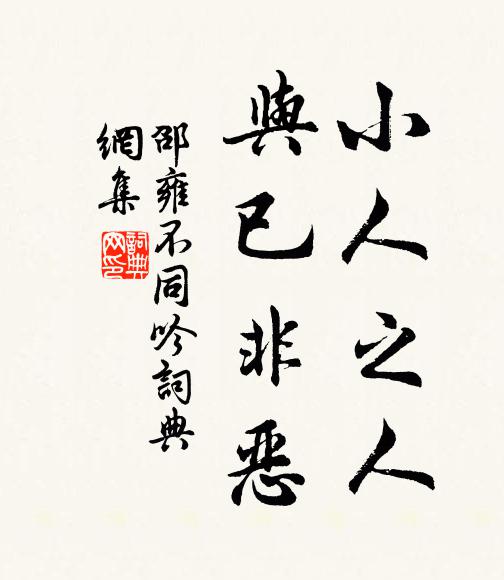 小人之人
與已非惡
邵雍不同吟詞典
網集
詞典
网印